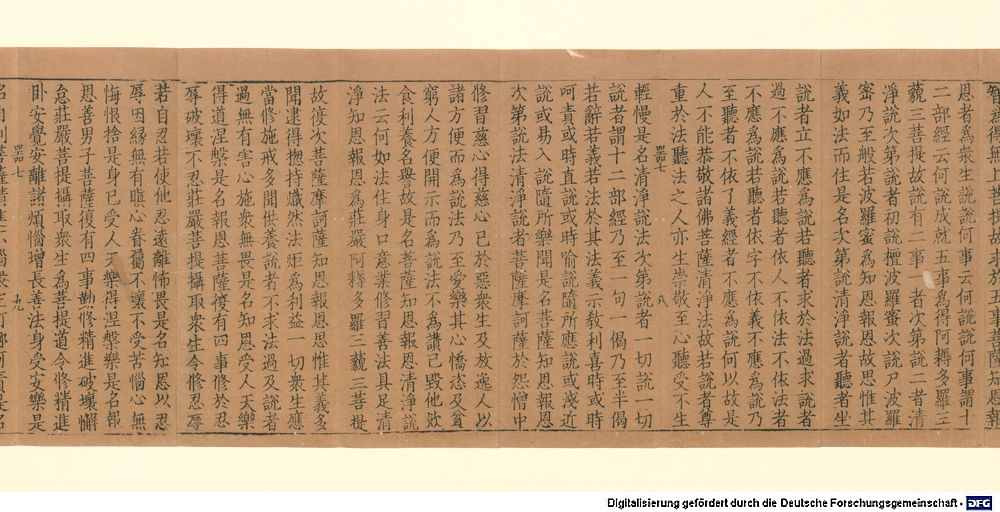 智慧得無上菩提故求於五事菩薩知恩報
恩者為衆生說說何事云何說說何事謂十
二部經云何說成就五事為得阿耨多羅三
藐三菩提故說有二事一者次第說二者清
淨說次第說者初說檀波羅蜜次說尸波羅
蜜乃至般若波羅蜜為知恩報恩故思惟其
義如法而住是名次第說清淨說者聽者坐
說者立不應為說若聽者求於法過求說者
過不應為說若聽者依人不依法不求法者
不應為說若聽者依字不依義不應為說乃
至聽者不依了義經者不應為說何以故是
人不能恭敬諸佛菩薩清淨法故若說者尊
重於法聽法之人亦生崇敬至心聽受不生
器七 八
輕慢是名清淨說法次第說者一切說一切
說者謂十二部經乃至一句一偈乃至半偈
若辭若義若法於其法義示教利喜時或時
呵責或時直說或時喻說隨所應說或淺近
說或易入說隨所樂聞是名菩薩知恩報恩
次第說法清淨說者菩薩摩訶薩於怨憎中
修習慈心得慈心已於惡衆生及放逸人以
諸方便而為說法乃至愛樂其心憍恣及貧
窮人方便開示而為說法不為讚己毀他飲
食利養名譽故是名菩薩知恩報恩清淨說
法云何如法住身口意業修習善法具足清
淨知恩報恩為莊嚴阿耨多羅三藐三菩提
故復次菩薩摩訶薩知恩報恩思惟其義多
聞逮得揔持熾然法炬為利益一切衆生應
當修施戒多聞供養說者不求法過及說者
過無有害心施衆無畏是名知恩受人天樂
得道涅槃是名報恩菩薩復有四事修於忍
辱破壞不忍莊嚴菩提攝取衆生令修忍辱
若自忍若使他忍遠離怖畏是名知恩以忍
辱因緣無有瞋心眷屬不壞不受苦惱心無
悔恨捨是身已受人天樂得涅槃樂是名報
恩善男子菩薩復有四事勤修精進破壞懈
怠莊嚴菩提攝取衆生為菩提道令修精進
臥安覺安離諸煩惱增長善法身受安樂是
器七 九
Digitalisierung gefördert durch die Deutsche Forschungsgemeinschaft - DFG